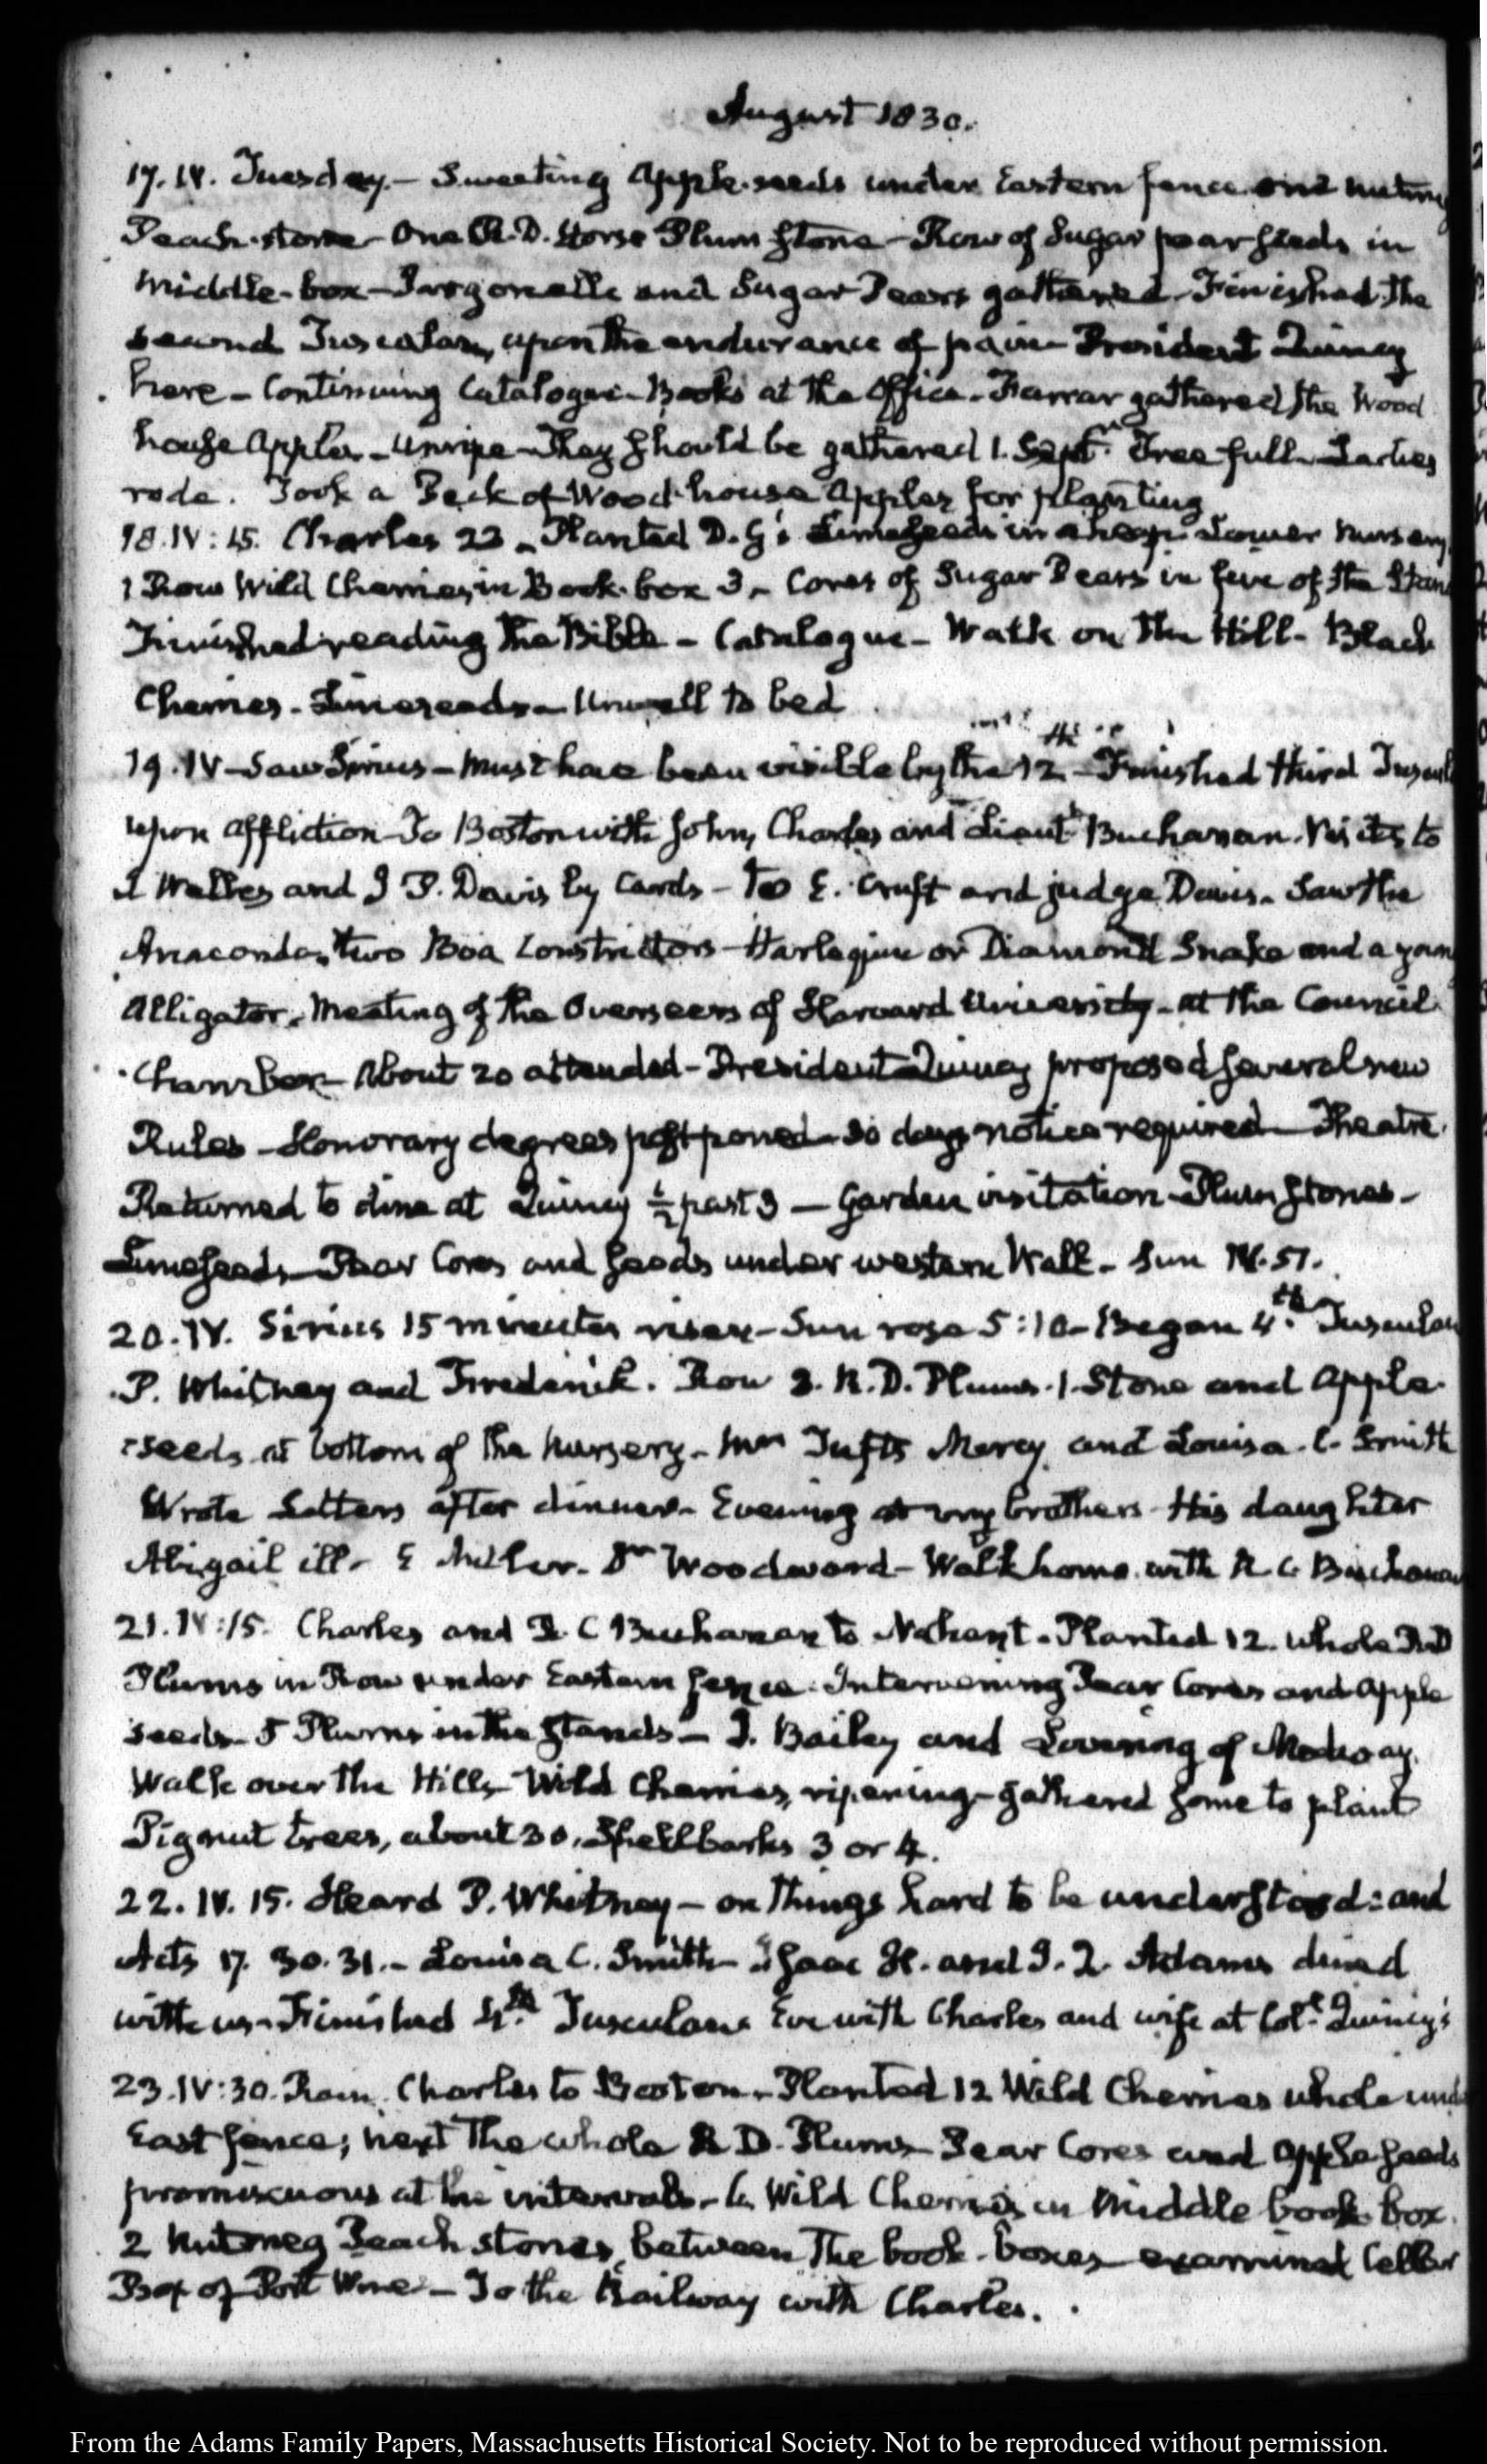 August 1830.
17. IV. Tuesday.— Sweeting Apple-seeds under Eastern fence and nutmeg
Peach-stone— One R. D. Horse Plum Stone— Row of Sugar pear seeds in
middle-box— Jargonelle and Sugar Pears gathered— Finished the
second Tusculan, upon the endurance of pain— President Quincy
here— Continuing Catalogue— Books at the Office— Farrar gathered the Wood
house Apples— Unripe— They should be gathered 1. Sept.r Tree full— Ladies
rode. Took a Peck of Wood-house Apples for planting
18. IV: 15. Charles 23— Planted D. G's Limeseeds in a heap. Lower nursery
1 Row Wild Cherries, in Book-box 3— Cores of Sugar Pears in five of the Stan
Finished reading the Bible— Catalogue— Walk on the Hill— Black
Cherries— Limeseeds— Unwell to bed
19. IV— Saw Sirius— must have been visible by the 12th— Finished third Tuscul
upon affliction— To Boston with John, Charles and Lieut.t Buchanan. Visits to
and J P. Davis by Cards— to E. Cruft and judge Davis— Saw the
Anaconda, two Boa Constrictors— Harlequin or Diamond Snake and a youn
Alligator— Meeting of the Overseers of Harvard University— at the Council
Chamber— About 20 attended— President Quincy proposed several new
Rules— Honorary degrees postponed— 30 days notice required— Theatre.
Returned to dine at Quincy ½ past 3— Garden visitation— Plum Stones—
Limeseeds— Pear Cores and seeds under western Wall— Sun IV. 51.
20. IV. Sirius 15 minutes risen— Sun rose 5:10— Began 4.th Tusculan
P. Whitney and Frederick. Row 2. R. D. Plums. 1. Stone and Apple-
seeds at bottom of the nursery— Mrs Tufts Mercy and Louisa C. Smith
Wrote Letters after dinner— Evening at my brothers— His daughter
Abigail ill— E Miller. Dr Woodward— Walk home with R. C Buchanan
21. IV:15. Charles and R. C Buchanan to Nahant— Planted 12. whole R D
Plums in Row under Eastern fence. Intervening Pear Cores and Apple
seeds— 5 Plums in the Stands— J. Bailey and Lovering of Medway.
Walk over the Hills— Wild Cherries, ripening— gathered some to plant
Pignut trees, about 30, Shellbarks 3 or 4.
22. IV. 15. Heard P. Whitney— on things hard to be understood: and
Acts 17. 30. 31.— Louisa C. Smith— Isaac H. and J. Q. Adams dined
with us— Finished 4.th Tusculan. Eve with Charles and wife at Col.l Quincy's
23. IV:30. Rain. Charles to Boston— Planted 12 Wild Cherries whole und
East fence; next the whole R D. Plums— Pear Cores and Apple seeds
promiscuous at the intervals— 6 Wild Cherries in Middle book box.
2 Nutmeg Peach stones, between the book-boxes— examined Cellar
Box of Port Wine— To the Railway with Charles.
From the Adams Family Papers, Massachusetts Historical Society. Not to be reproduced without permission.